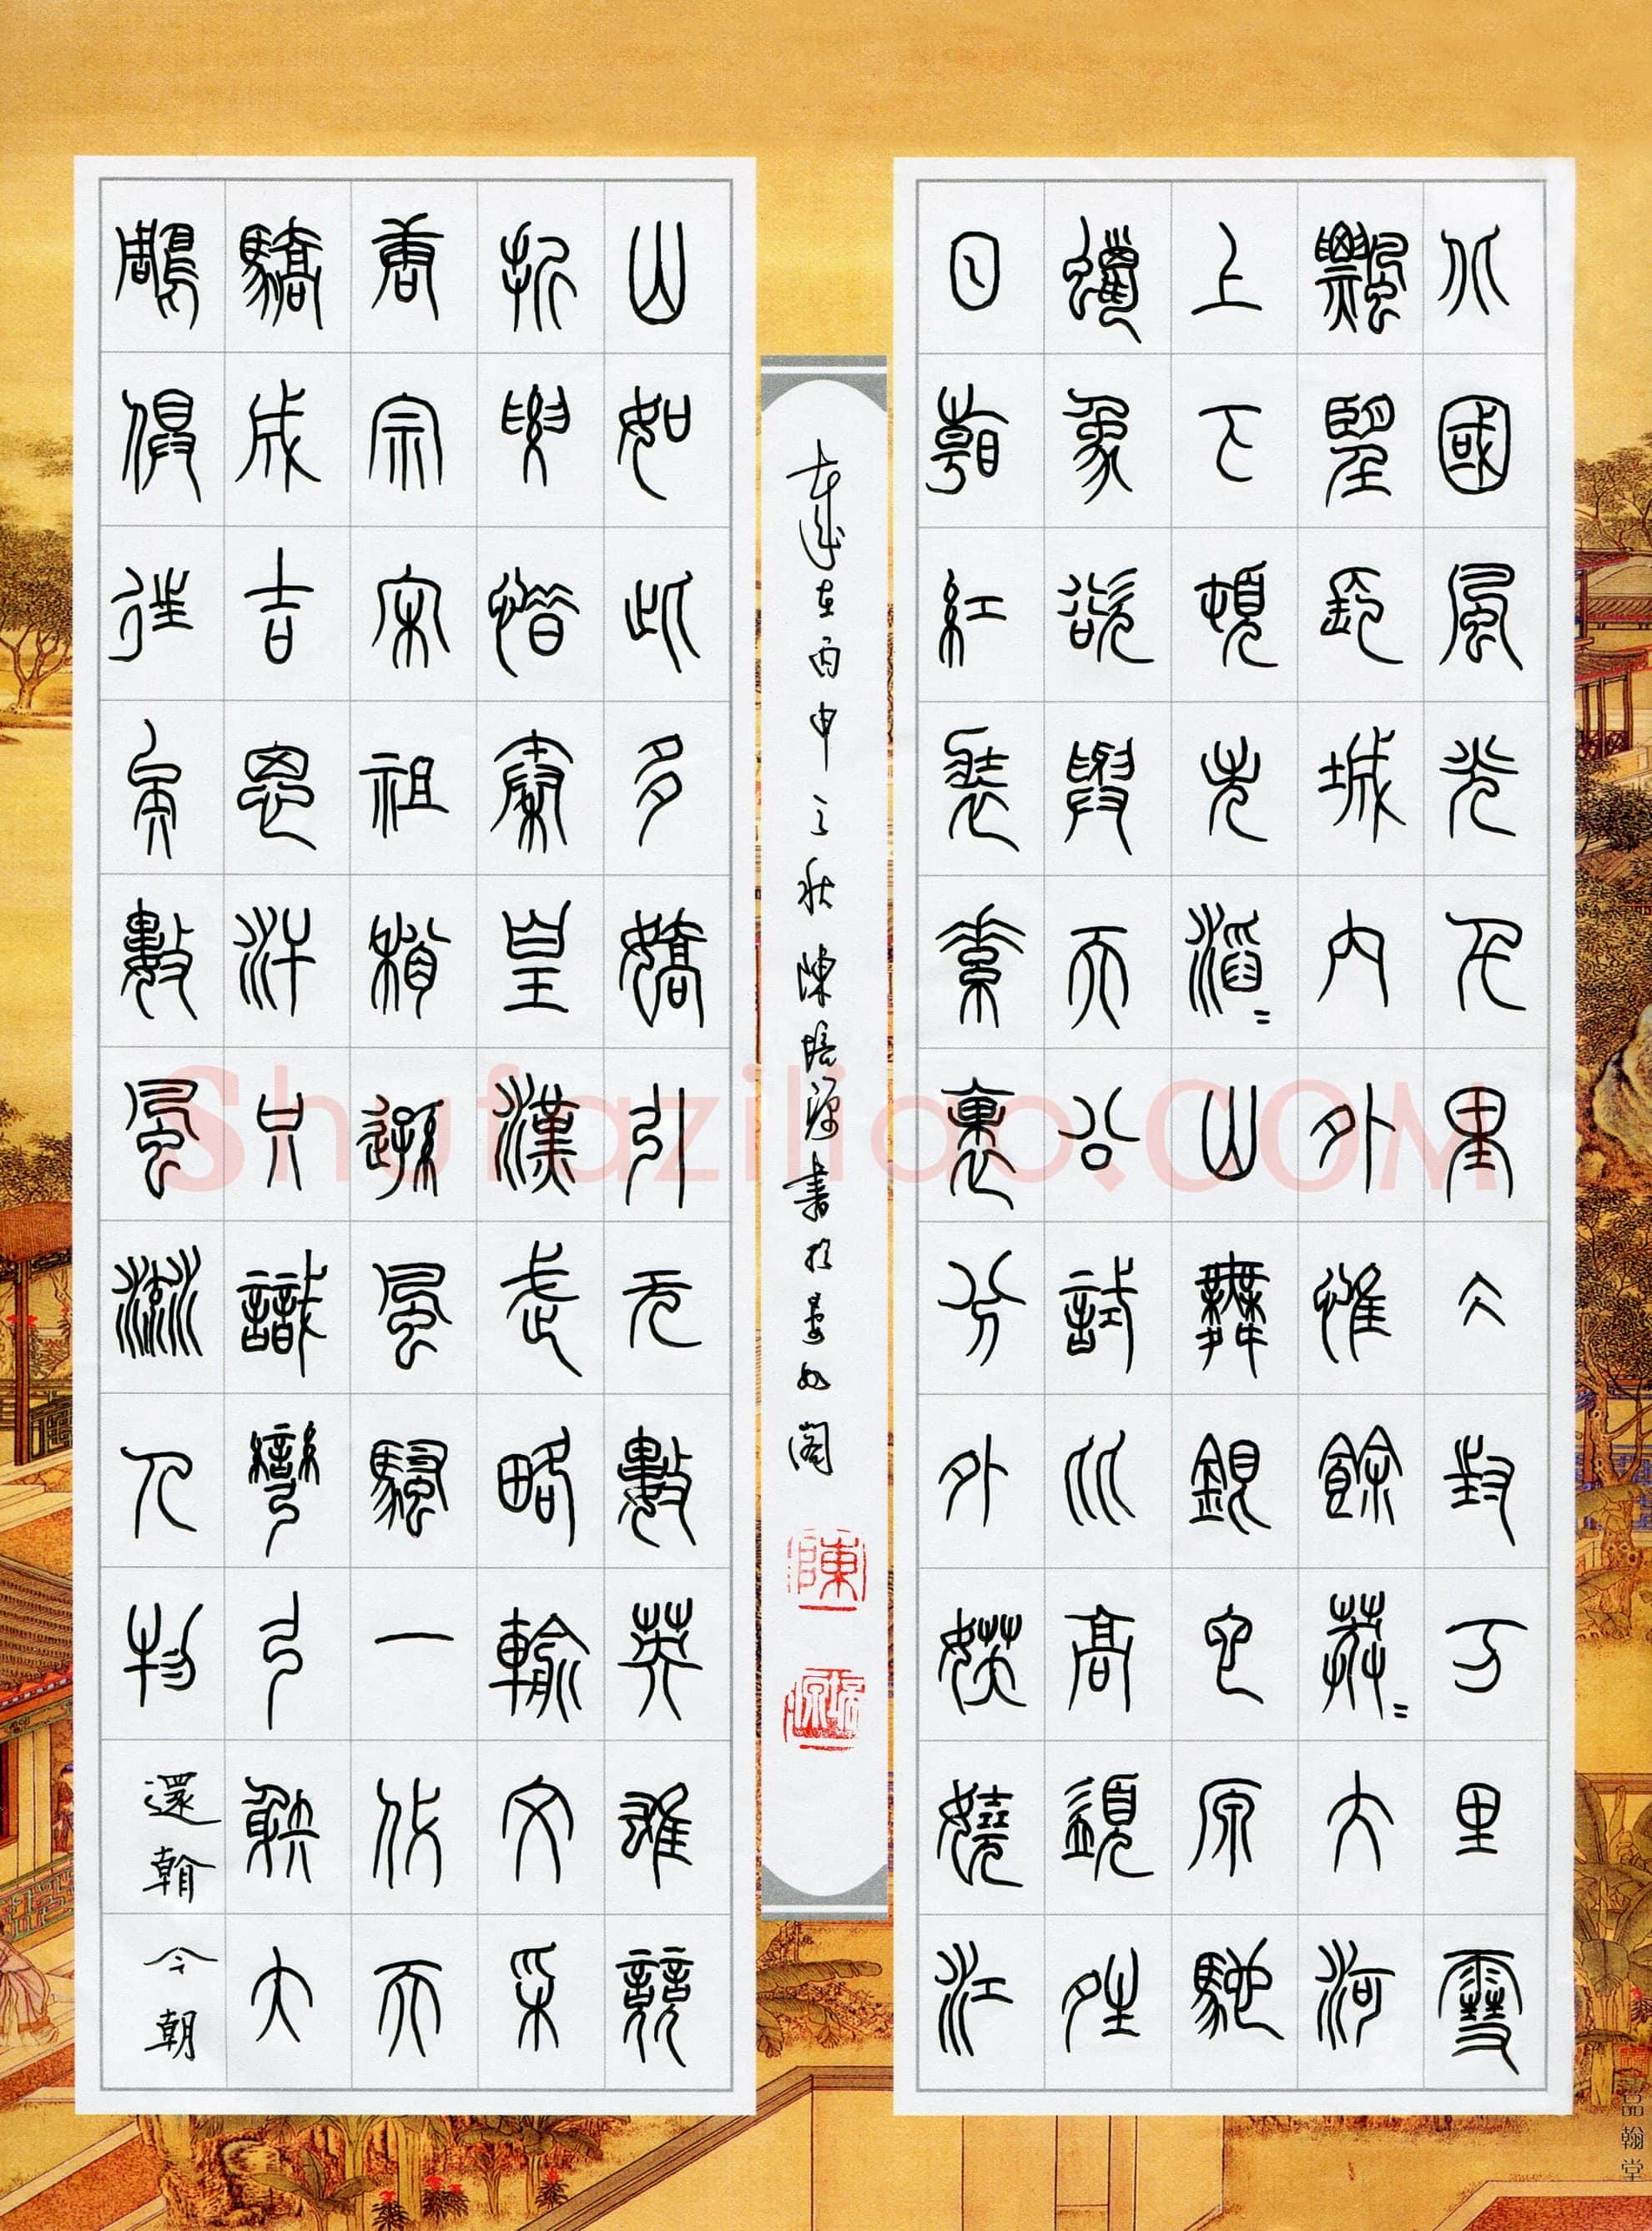 北國風光千里冰封万里雪
飄望長城內外惟餘莽〻大河
上下頓失滔〻山舞銀蛇原馳
蠟象欲與天公試比高須晴
日看紅裝素裹分外妖嬈江
山如此多嬌引无數英雄競
折腰惜秦皇漢武略輸文采
唐宗宋祖稍遜風騷一代天
驕成吉思汗只識彎弓射大
鵰俱往矣數風流人物還看今朝
歲在丙申之秋陳培源書於晏如閣
Shufaziliao.COM
品翰堂